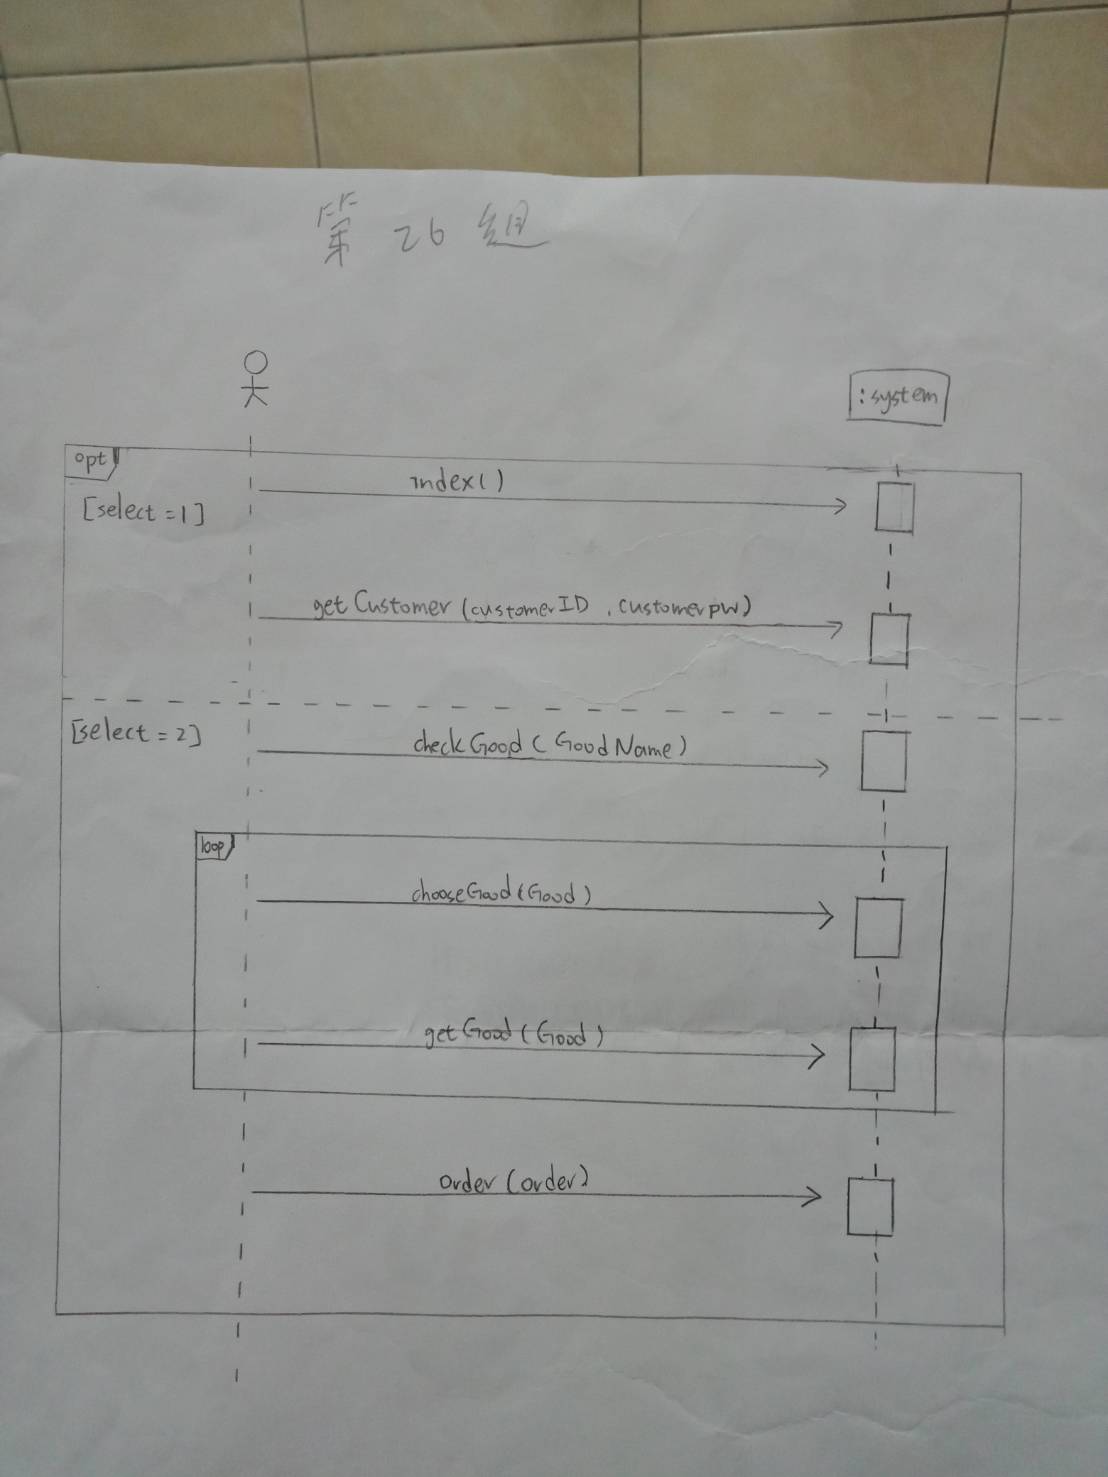 第 26 組
:system
opt
index()
[select=1]
getCustomer(customerID, customerpw)
[select=2]
checkGood(GoodName)
loop
chooseGood(Good)
getGood(Good)
order(order)